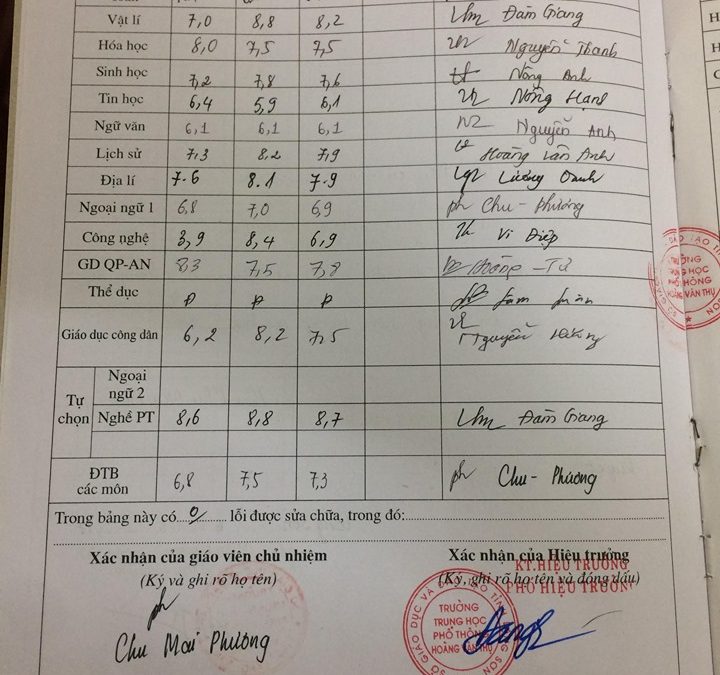 Vật lí 7,0 8,8 8,2 Đàm Giang
Hóa học 8,0 7,5 7,5 Nguyễn Thanh
Sinh học 7,2 7,8 7,6 Nông Anh
Tin học 6,4 5,9 6,1 Nông Hạnh
Ngữ văn 6,1 6,1 6,1 Nguyễn Anh
Lịch sử 7,3 8,2 7,9 Hoàng Vân Anh
Địa lí 7.6 8.1 7.9 Lương Oanh
Ngoại ngữ 1 6,8 7,0 6,9 Chu - Phương
Công nghệ 3,9 8,4 6,9 Vi Điệp
GD QP-AN 8,3 7,5 7,8 Hoàng - Tú
Thể dục Đ Đ Đ
Giáo dục công dân 6,2 8,2 7,5 Nguyễn
Tự chọn
Ngoại ngữ 2
Nghề PT 8,6 8,8 8,7 Đàm Giang
ĐTB các môn 6,8 7,5 7,3 Chu - Phương
Trong bảng này có 0 lỗi được sửa chữa, trong đó:
Xác nhận của giáo viên chủ nhiệm
(Ký và ghi rõ họ tên)
Chu Mai Phương
Xác nhận của Hiệu trưởng
KT.HIỆU TRƯỞNG
(Ký, ghi rõ họ tên và đóng dấu)
PHÓ HIỆU TRƯỞNG
TRƯỜNG
TRUNG HỌC
PHỔ THÔNG
HOÀNG VĂN THỤ
TRƯỜNG
TRUNG HỌC
PHỔ THÔNG
HOÀNG VĂN THỤ